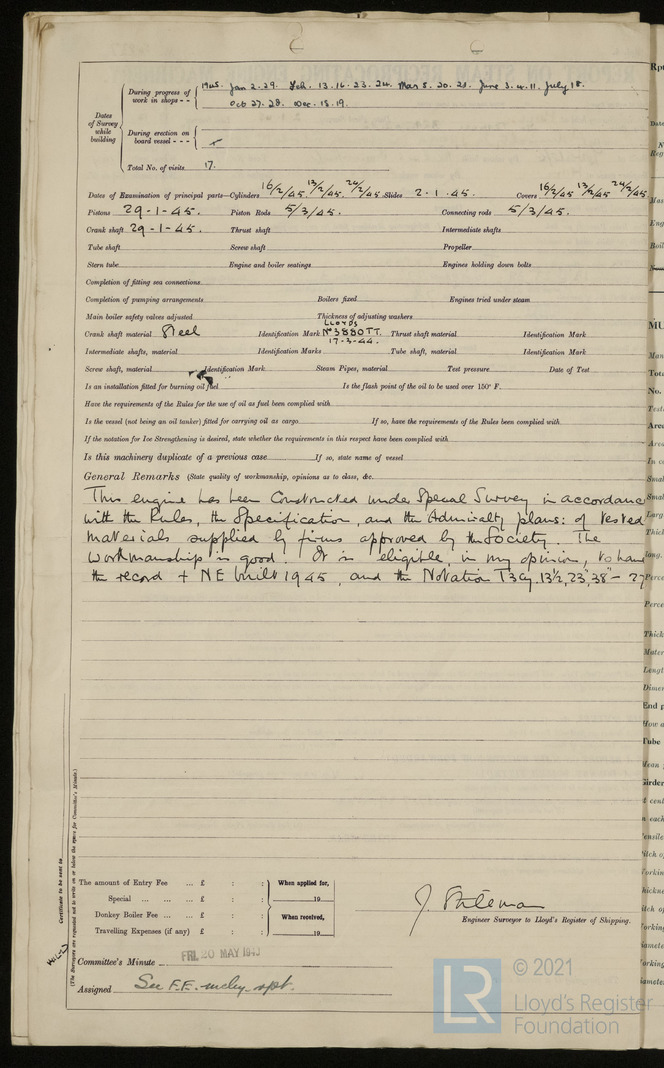 During progress of work in shops - - 1945. Jan 2. 29. Feb. 13. 16. 23. 24. Mar 5. 20. 21. June 3. 4. 11. July 18.
Oct 27. 28. Dec. 18. 19.
Dates of Survey while building
During erection on board vessel - - -
Total No. of visits 17.
Dates of Examination of principal parts—Cylinders 16/2/45. 13/2/45. 24/2/45 Slides 2. 1. 45. Covers 16/2/45 13/2/45 24/2/45
Pistons 29-1-45. Piston Rods 5/3/45. Connecting rods 5/3/45.
Crank shaft 29-1-45. Thrust shaft Intermediate shafts
Tube shaft Screw shaft Propeller
Stern tube Engine and boiler seatings Engines holding down bolts
Completion of fitting sea connections
Completion of pumping arrangements Boilers fixed Engines tried under steam
Main boiler safety valves adjusted Thickness of adjusting washers
Crank shaft material Steel Identification Mark LLOYDS No 3880 TT. 17-3-44. Thrust shaft material Identification Mark
Intermediate shafts, material Identification Marks Tube shaft, material Identification Mark
Screw shaft, material Identification Mark Steam Pipes, material Test pressure Date of Test
Is an installation fitted for burning oil fuel Is the flash point of the oil to be used over 150° F.
Have the requirements of the Rules for the use of oil as fuel been complied with
Is the vessel (not being an oil tanker) fitted for carrying oil as cargo If so, have the requirements of the Rules been complied with
If the notation for Ice Strengthening is desired, state whether the requirements in this respect have been complied with
Is this machinery duplicate of a previous case If so, state name of vessel
General Remarks (State quality of workmanship, opinions as to class, &c.
This engine has been Constructed under Special Survey in accordance
with the Rules, the Specification, and the Admiralty plans: of tested
materials supplied by firms approved by the Society. The
workmanship is good. It is eligible, in my opinion, to have
the record + NE built 1945, and the Notation T3cy. 13½, 23", 38" - 27
(The Surveyors are requested not to write on or below the space for Committee's Minute.)
Certificate to be sent to
The amount of Entry Fee ... £ : : When applied for,
Special ... ... ... £ : : 19
Donkey Boiler Fee ... ... £ : : When received,
Travelling Expenses (if any) £ : : 19
J. Stateman
Engineer Surveyor to Lloyd's Register of Shipping.
Committee's Minute FRI. 20 MAY 194
Assigned See F.E. mchy. rpt.
© 2021
LR
Lloyd's Register
Foundation